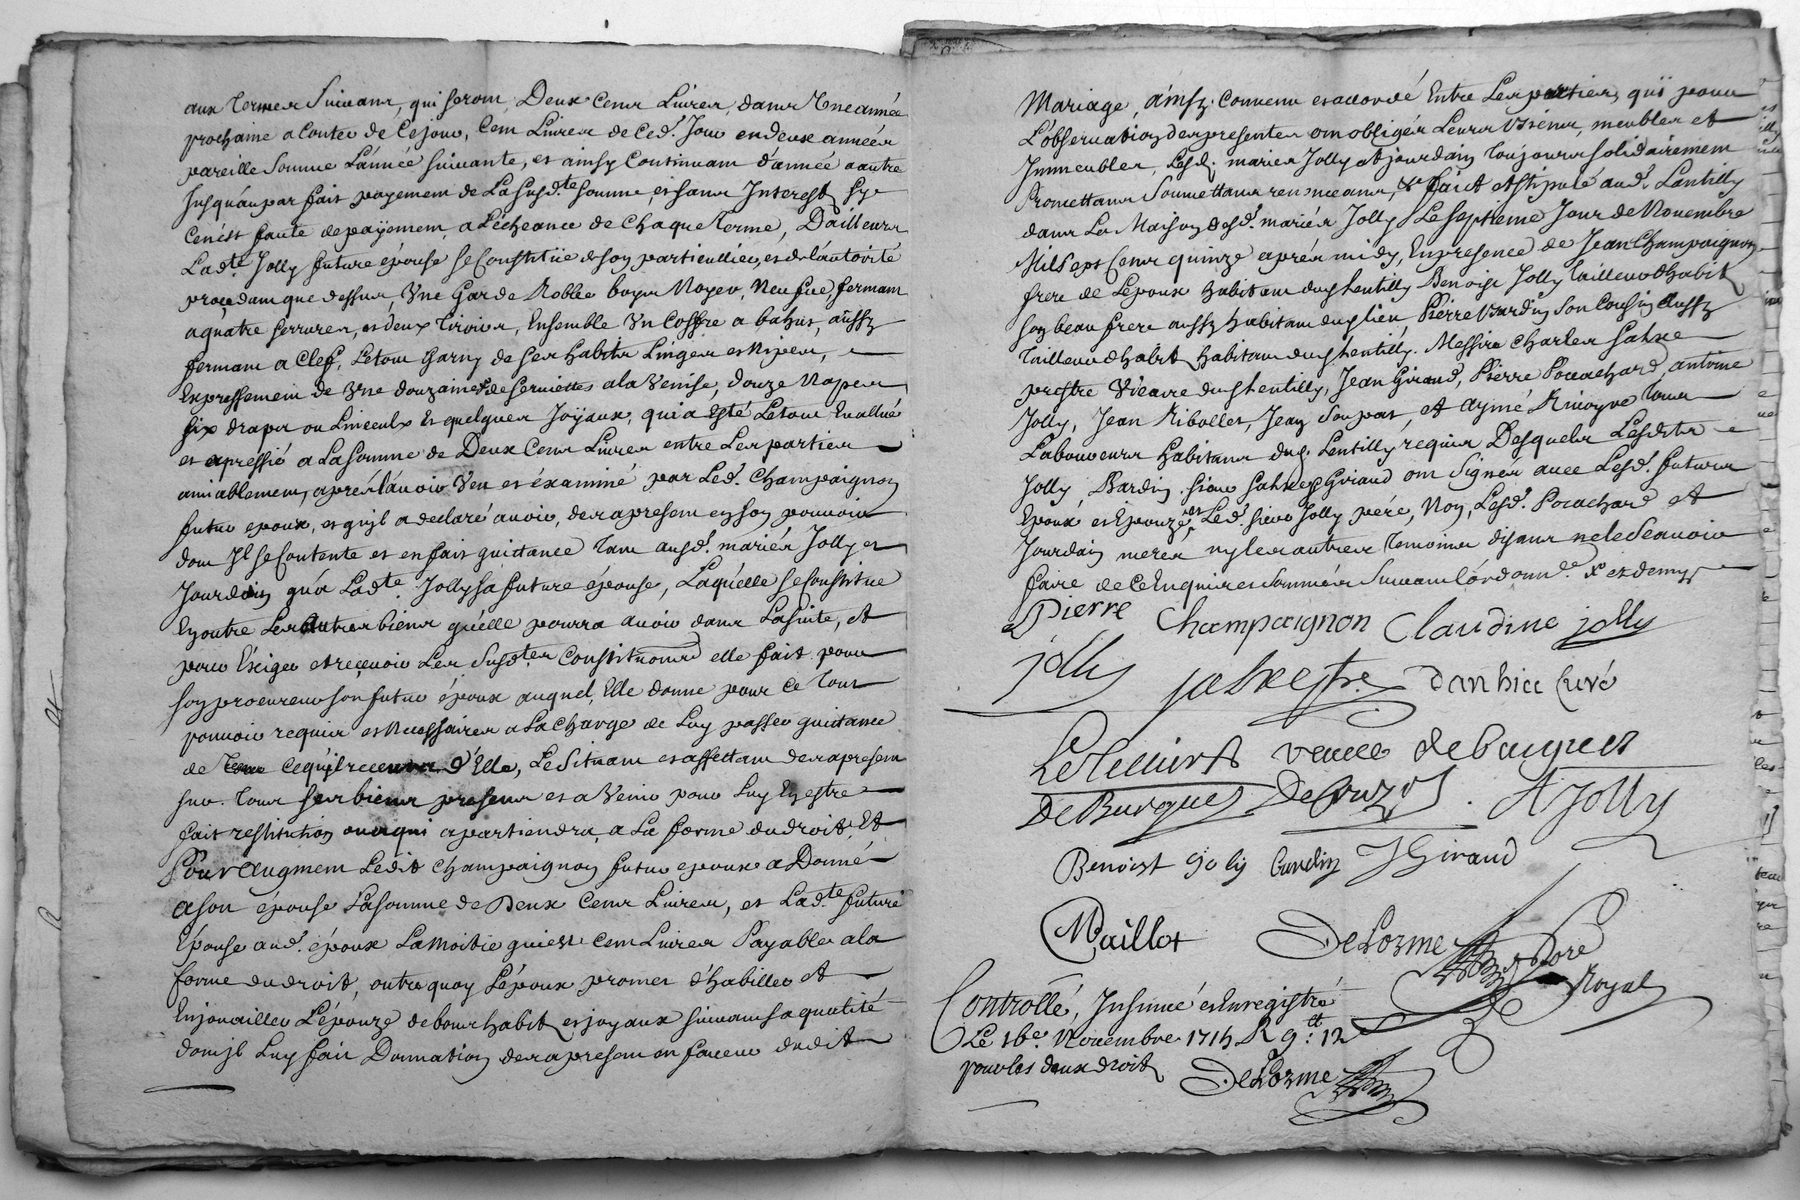 aux termes suivans, qui seront Deux cens Livres, dans Une année
prochaine a Conter de Ce jour, Cent Livres de Ced.t Jour en deux années
pareille Somme L'année suivante, et ainsy Continuant d'année a autre
Jusqu'au parfait payement de La susd.te somme, et sans Interest sy
Cen'est faute de payëment, a L'écheance de Chaque terme, D'ailleurs
Lad.te Jolly future épouse se Constitüe de son particullier, et de L'autorité
procedant que dessus, Une Garde Robbe boyes Noyer, Neufve, fermant
aquatre serrures, et deux tiroirs, Ensemble Un Coffre a bahut, aussy
fermant a Clef, Letout Garny de ses habits Linges et Nipes,
Expressement de Une douzaine de serviettes ala Venise, douze Napes
six draps ou Linceulx et quelques Joÿaux, qui a Esté Letout Evallué
et apressié a La somme de Deux Cens Livres entre Les parties
amiablement, aprés L'avoir Veu et éxaminé par Led.t Champaignon
futur epoux, et qu'il a declaré avoir, des a present en son pouvoir
dont Il se Contente et en fait quittance tant ausd.ts mariés Jolly et
Jourdain qu'a Lad.te Jolly sa future épouse, Laquelle se Constitue
En outre Les Autres biens qu'elle pourra avoir dans La suite, et
pour Exiger et reçevoir Les susd.tes Constitutions elle fait pour
son procureur son futur époux auquel, Elle donne pour ce tout
pouvoir requis et Necessaires a La Charge de Luy passer quittance
de Ce qu'il recevra d'Elle, Le Situant et affectant des a present
sur tous ses biens presens et a Venir pour Luy En estre
fait restitution ou a qui apartiendra, a La forme du droit, Et
Pour Augment Ledit Champaignon futur epoux a Donné
a son épouse La somme de Deux Cens Livres, et Lad.te future
Epouse aud.t époux La Moitie qui est Cent Livres Payables ala
forme du droit, outre quoy L'époux promet d'habiller et
Enjouailler L'épouze de bons habits et joyaux suivant sa qualité
dont il Luy fait Donnation des a present en faveur dudit
Mariage, ainsy Convenu et accordé Entre Les parties, qui pour
L'observation des presentes ont obligés Leurs Biens, meubles et
Immeubles, Lesd. mariés Jolly et jourdain toujours solidairement
Promettans Soumettans renonceans, &c fait et stipulé aud.t Lentilly
dans La Maison desd.ts mariés Jolly Le septieme Jour de Novembre
Mil sept Cens quinze aprés midy, En presence de Jean Champaignon
frere de L'epoux habitant dud Lentilly Benoist Jolly tailleur d'habits
son beau frere aussy habitant dud lieu, Pierre Bardin son Cousin Aussy
tailleur d'habits habitant dud Lentilly. Messire Charles
prestre Vicaire dud Lentilly, Jean Giraud, Pierre Pocachard, antoine
Jolly, Jean Ribollet, Jean et Aymé tous
Laboureurs habitans dud. Lentilly requis Desquels Lesdits
Jolly Bardin, sieur Giraud ont signés avec Lesd.ts futurs
Epoux et Epouze, et Led.t sieur Jolly pére, Non, Lesd.ts Pocachard et
Jourdain meres ny les autres temoins disans ne le Scavoir
faire de Ce Enquis et sommés suivant L'ordonn.ce
Pierre Champaignon Claudine jolly
jolly danhier Curé
veuve debuques
DeBurques A Jolly
Benoist Joly bardin J Giraud
Maillot Delorme
Royal
Controllé, Insinué et Enregistré
Le 16.e Novembre 1715 R 9 : 12
pour les deux droits Delorme